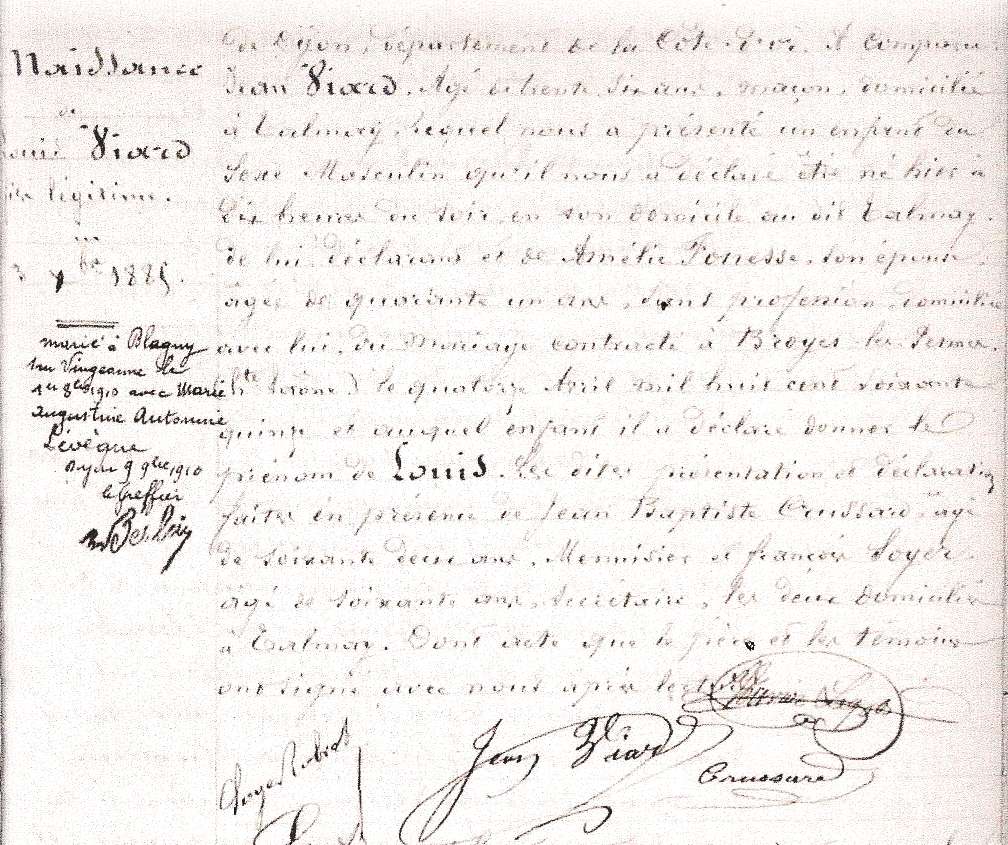 Naissance
de
Louis Viard
fils légitime.
3 7bre 1885.
marié à Blagny
sur Vingeanne le
1er 8bre 1910 avec Marie
Augustine Antoinine
Lévêque
Dijon 9 9bre 1910
le Greffier
de Dijon, département de la Côte-d'or. A comparu
Jean Viard. Agé de trente six ans, maçon, domicilié
à Talmay, lequel nous a présenté un enfant du
Sexe Masculin qu'il nous a déclaré être né hier à
dix heures du soir, en son domicile au dit Talmay.
de lui déclarant et de Amélie Fonesse, son épouse,
agée de quarante un ans, Sans profession, domiciliée
avec lui, du Mariage contracté à Broyes-les-Pesmes
(hte Saône) le quatorze Avril mil huit cent soixante
quinze et auquel enfant il a déclaré donner le
prénom de Louis. Les dites présentation et déclaration
faites en présence de Jean Baptiste Crussard, agé
de soixante deux ans, Menuisier et françois Loyer
âgé de soixante ans, Secrétaire, les deux domiciliés
à Talmay. Dont acte que le père et les témoins
ont signé avec nous après lecture
Jean Viard
Crussard
Loyer